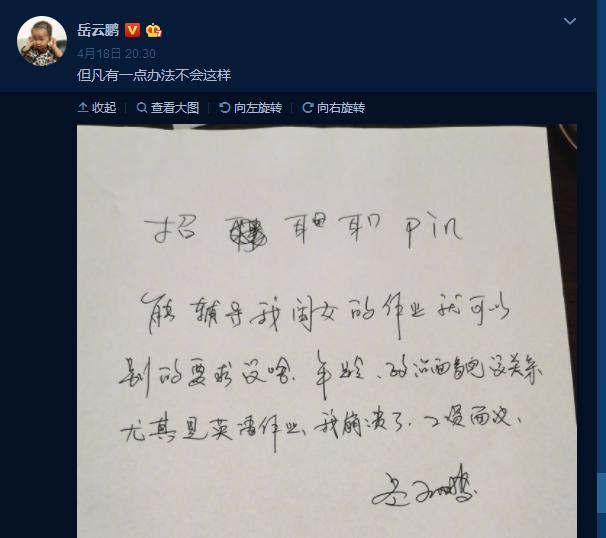 岳云鹏
4月18日 20:30
但凡有一点办法不会这样
收起 查看大图 向左旋转 向右旋转
招 职 pin
能辅导我闺女的作业就可以
别的要求没啥.年龄、政治面貌没关系
尤其是英语作业、我崩溃了.工资面议、
岳云鹏